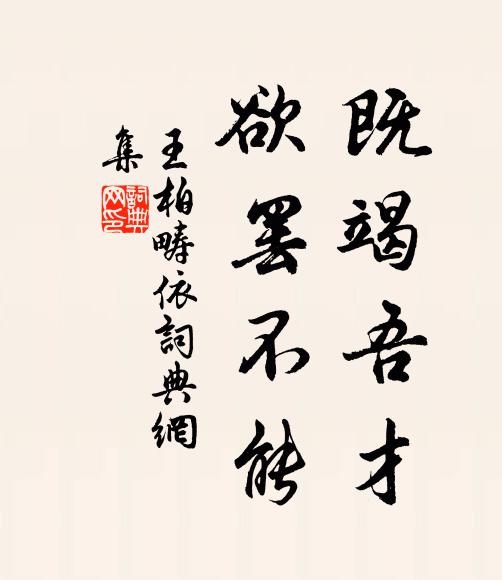 既竭吾才
欲罢不能
王柏畴依詞典網
集
詞典
网印